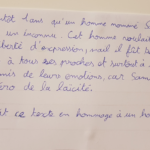 tôt 1 ans qu'un homme nommé S
un inconnu. Cet homme voulait
berté d'expression, mais il fût t
à tous ses proches et surtout à
mis de leurs émotions, car Sam
éro de la laïcité.
it ce texte en hommage à son ho